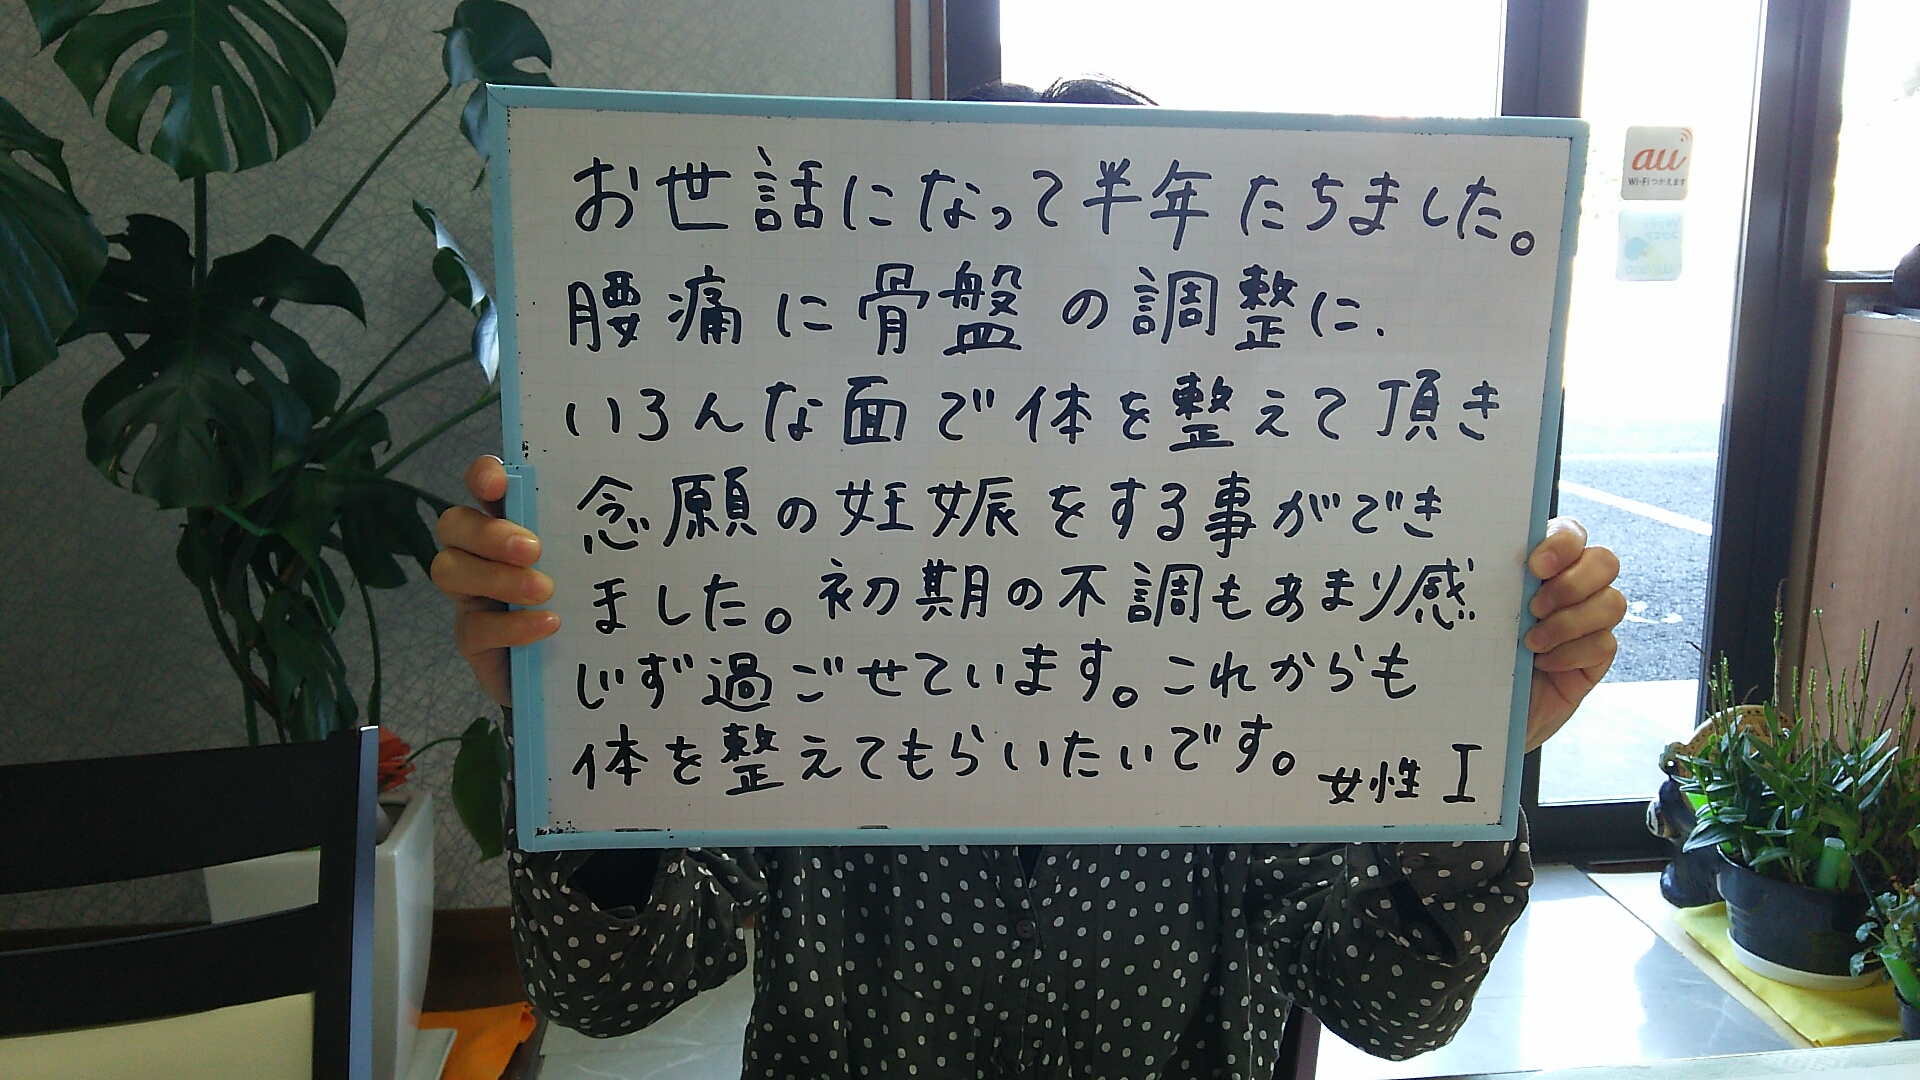 お世話になって半年たちました。
腰痛に骨盤の調整に、
いろんな面で体を整えて頂き
念願の妊娠をする事ができ
ました。初期の不調もあまり感
じず過ごせています。これからも
体を整えてもらいたいです。
女性 I
au
Wi-Fiつかえます